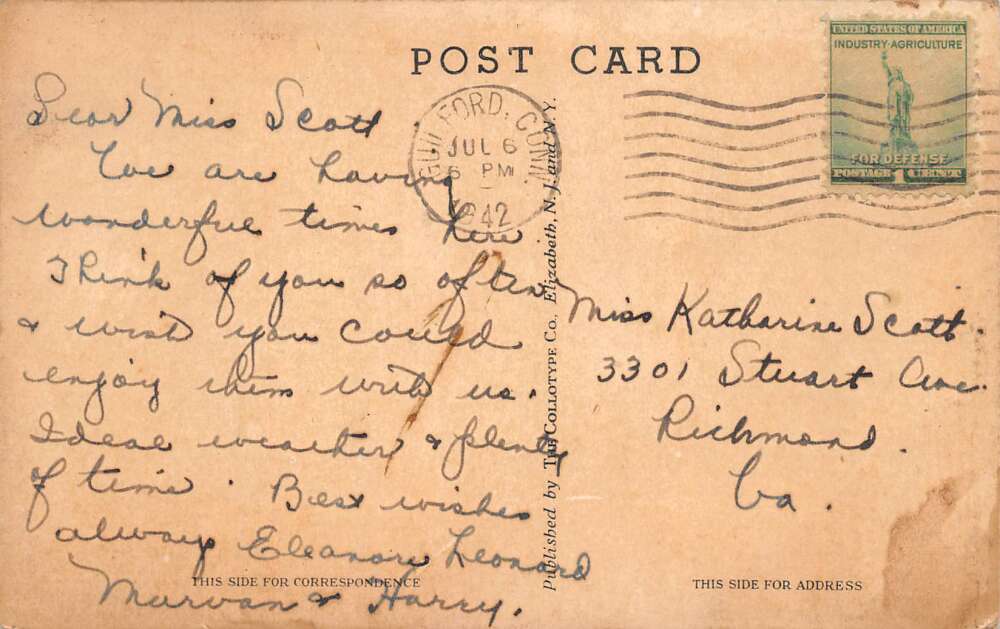 POST CARD
UNITED STATES OF AMERICA
INDUSTRY·AGRICULTURE
FOR DEFENSE
POSTAGE 1 CENT
GUILFORD, CONN.
JUL 6
6 PM
1942
Dear Miss Scott
We are having
wonderful times here
Think of you so often
& wish you could
enjoy them with us.
Ideal weather & plenty
of time. Best wishes
always Eleanore Leonard
& Harry.
THIS SIDE FOR CORRESPONDENCE
Published by THE COLLOTYPE CO., Elizabeth, N. J. and N. Y.
Miss Katharine Scott.
3301 Stuart Ave.
Richmond.
Va.
THIS SIDE FOR ADDRESS